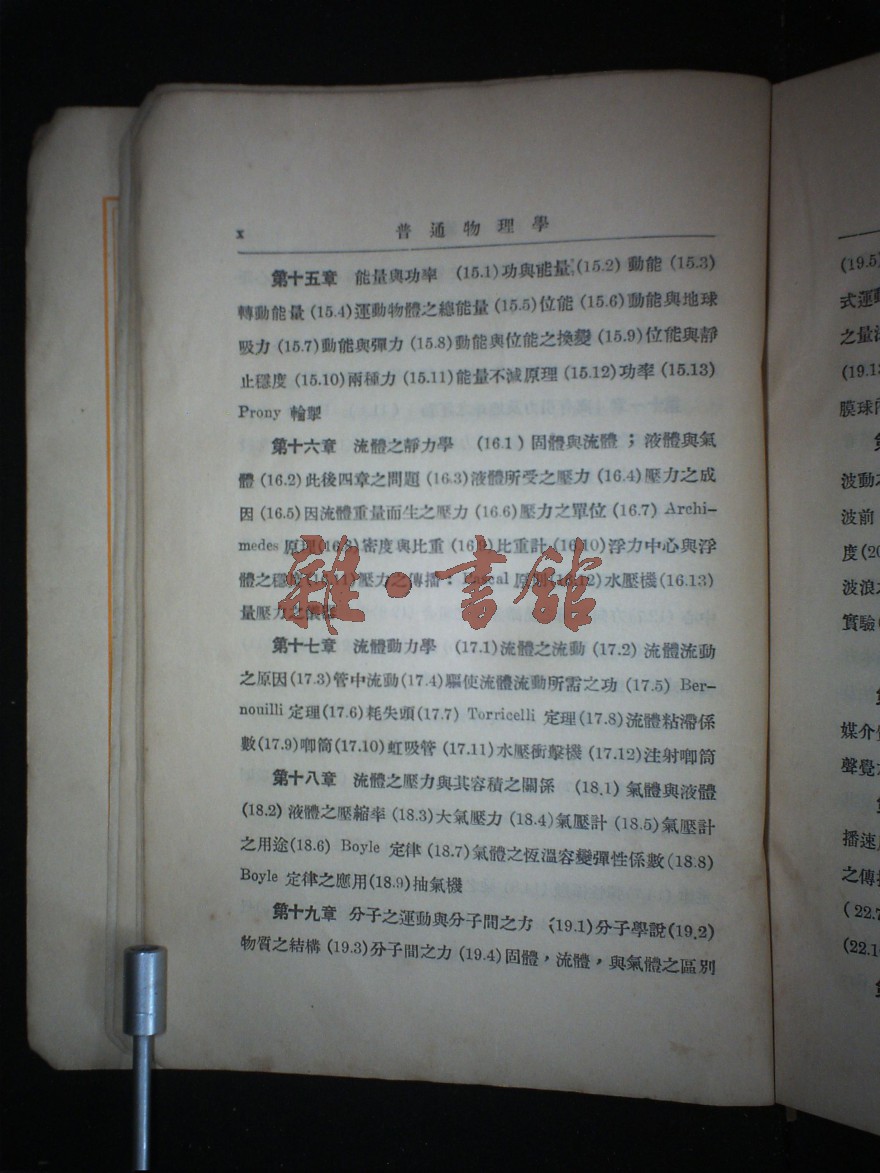 x 普通物理學
第十五章 能量與功率 (15.1)功與能量(15.2)動能(15.3)
轉動能量(15.4)運動物體之總能量(15.5)位能(15.6)動能與地球
吸力(15.7)動能與彈力(15.8)動能與位能之換變(15.9)位能與靜
止穩度(15.10)兩種力(15.11)能量不滅原理(15.12)功率(15.13)
Prony 輪掣
第十六章 流體之靜力學 (16.1)固體與流體;液體與氣
體(16.2)此後四章之問題(16.3)液體所受之壓力(16.4)壓力之成
因(16.5)因流體重量而生之壓力(16.6)壓力之單位(16.7) Archi-
medes 原理(16.8)密度與比重(16.9)比重計(16.10)浮力中心與浮
體之穩度(16.11)壓力之傳播:Pascal 原理(16.12)水壓機(16.13)
量壓力之儀器
第十七章 流體動力學 (17.1)流體之流動(17.2)流體流動
之原因(17.3)管中流動(17.4)驅使流體流動所需之功(17.5) Ber-
nouilli 定理(17.6)耗失頭(17.7) Torricelli 定理(17.8)流體粘滯係
數(17.9)唧筒(17.10)虹吸管(17.11)水壓衝擊機(17.12)注射唧筒
第十八章 流體之壓力與其容積之關係 (18.1)氣體與液體
(18.2)液體之壓縮率(18.3)大氣壓力(18.4)氣壓計(18.5)氣壓計
之用途(18.6) Boyle 定律(18.7)氣體之恆溫容變彈性係數(18.8)
Boyle 定律之應用(18.9)抽氣機
第十九章 分子之運動與分子間之力 (19.1)分子學說(19.2)
物質之結構(19.3)分子間之力(19.4)固體,流體,與氣體之區別
雜·書館
(19.5)
式運動
之量
(19.13
膜球
波動
波前
度(20
波浪
實驗
媒介
聲覺
播速
之傳
(22.7
(22.1